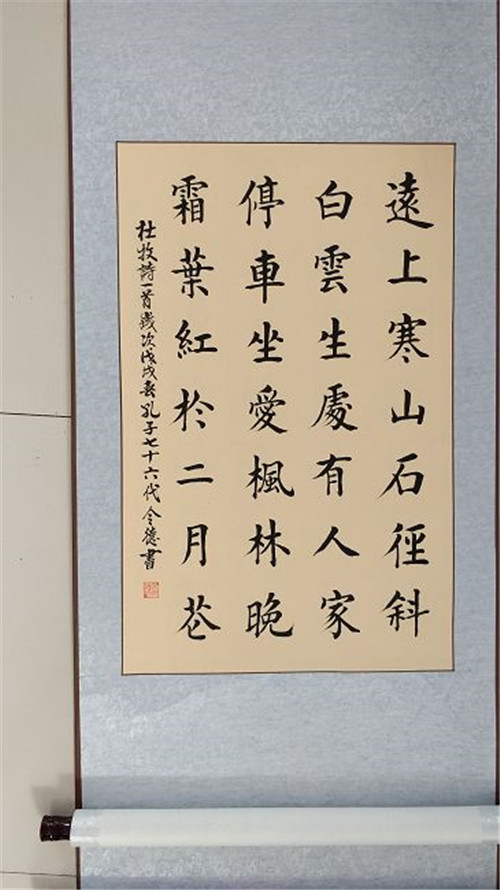 遠上寒山石徑斜
白雲生處有人家
停車坐愛楓林晚
霜葉紅於二月花
杜牧詩一首歲次戊戌春孔子七十六代令德書